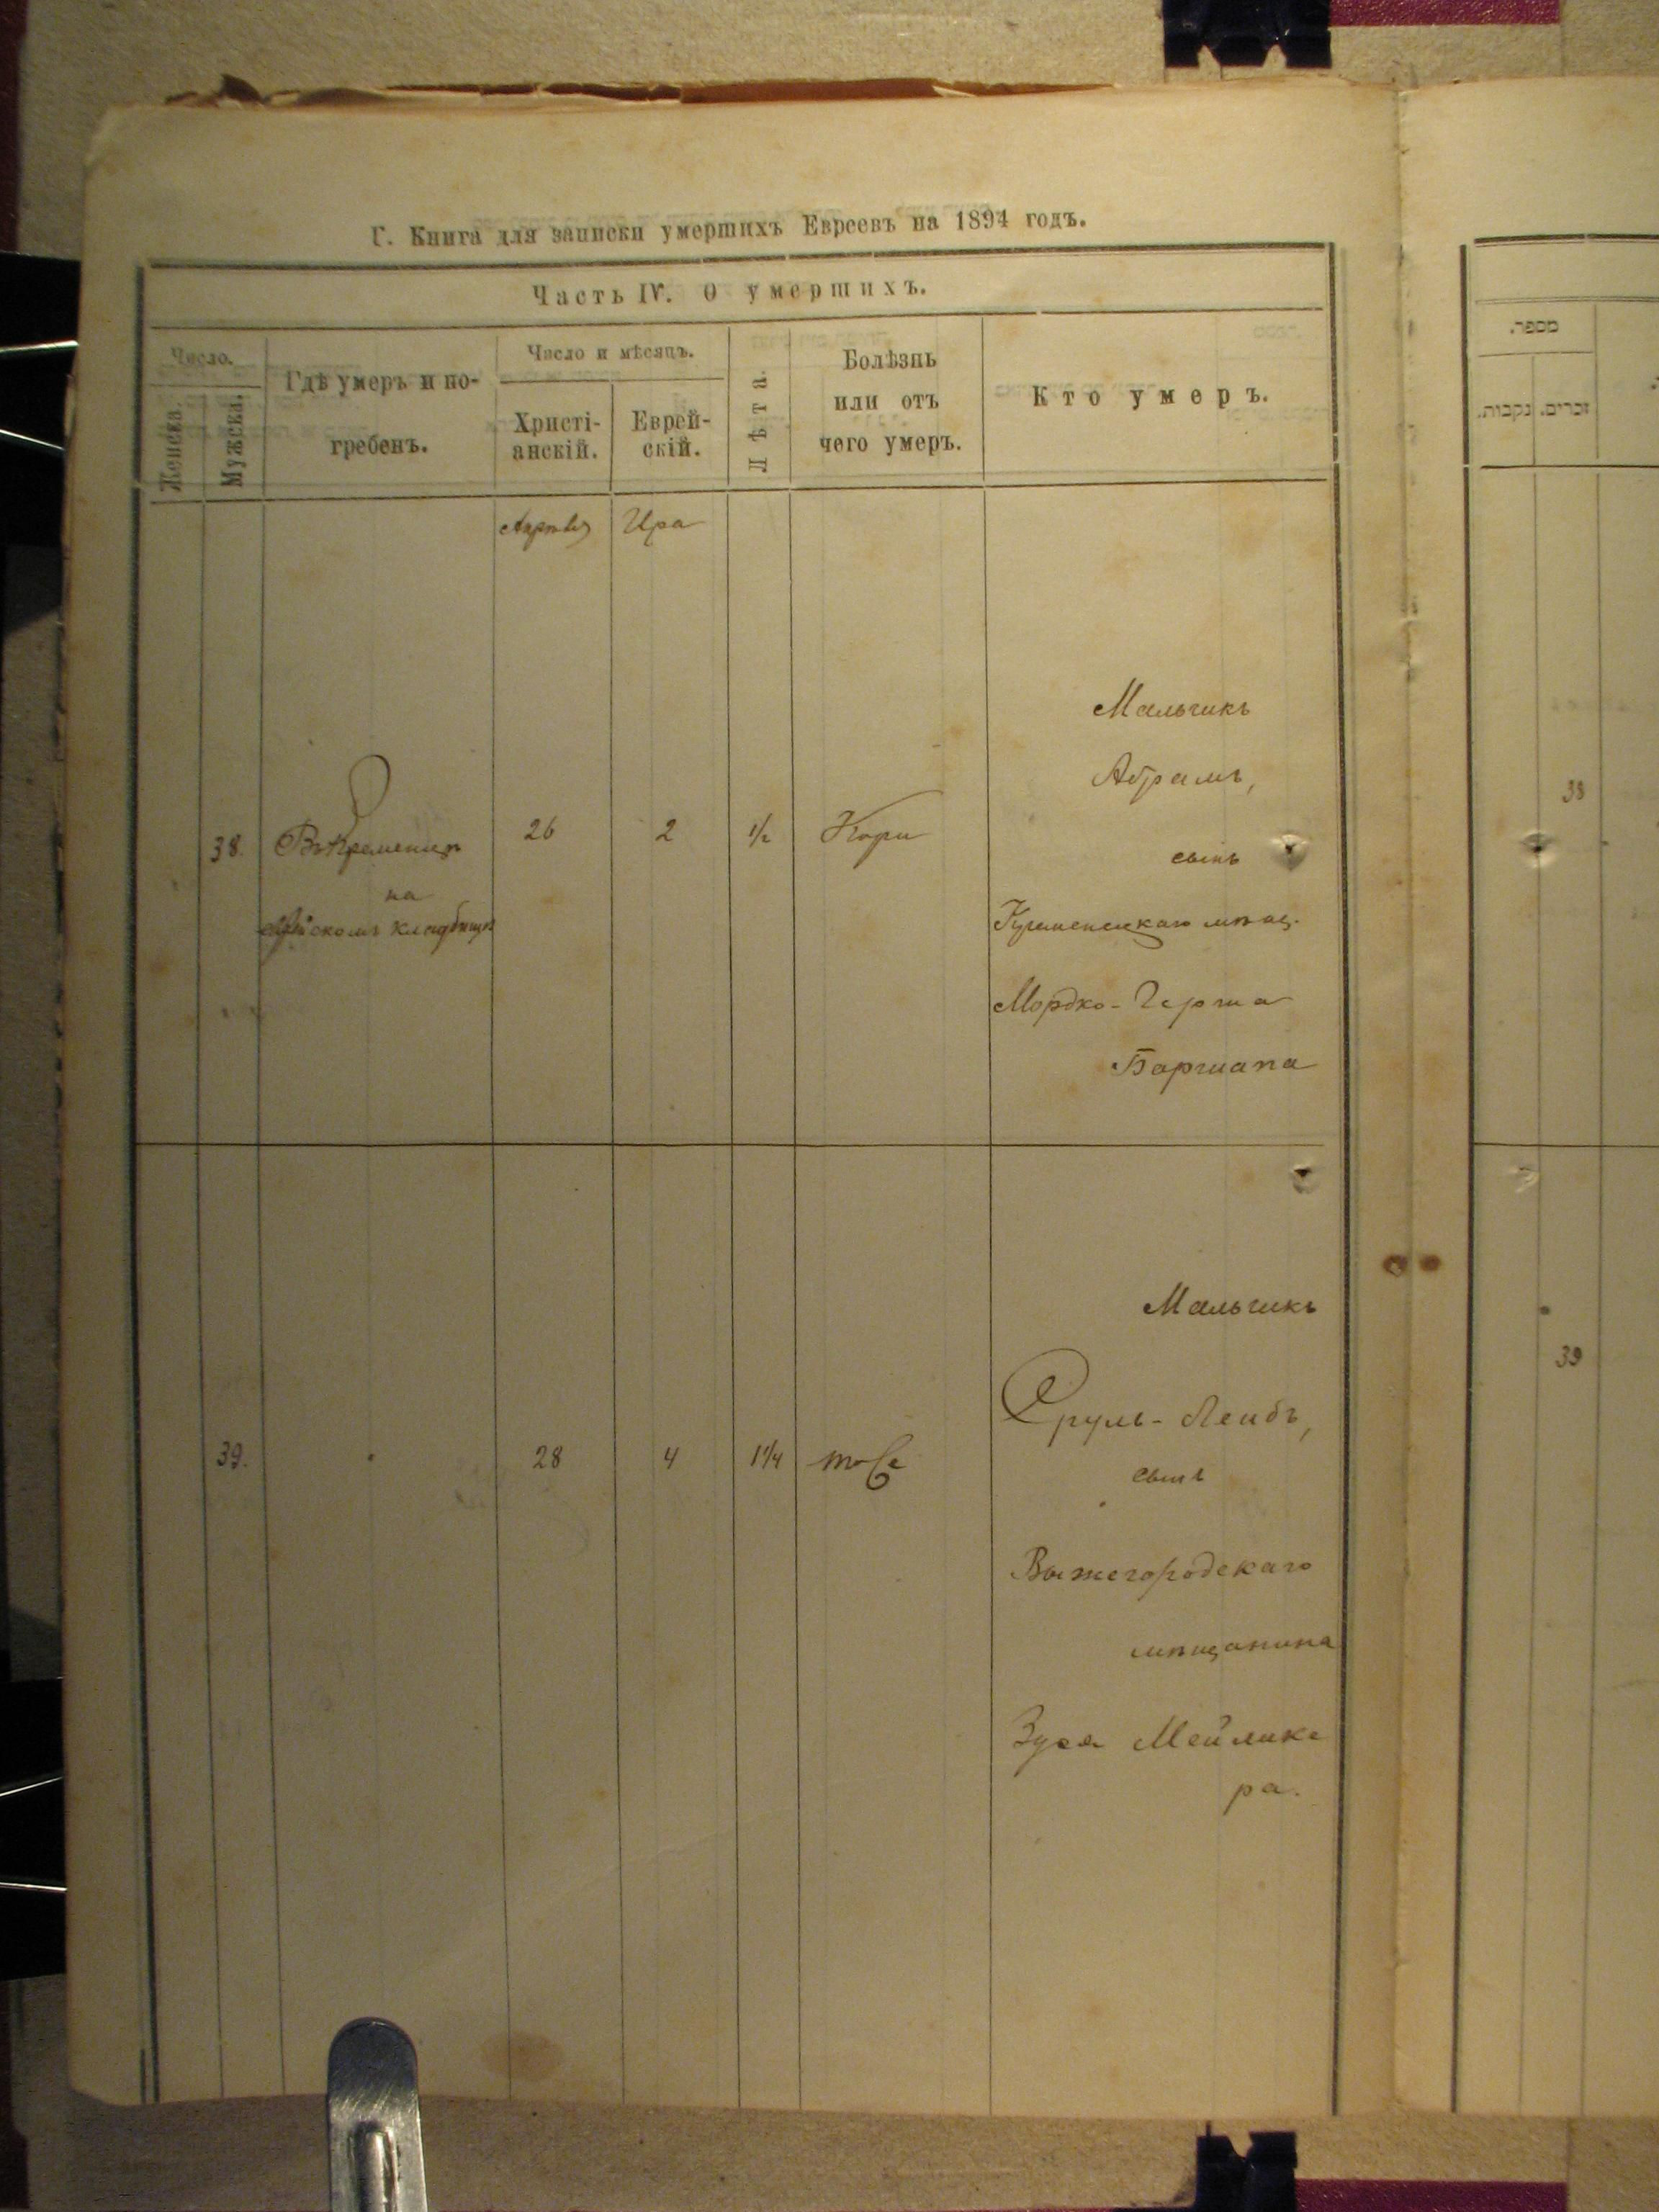 Г. Книга для записки умершихъ Евреевъ на 1894 годъ.
Часть IV. О умершихъ.
Число.
Женска.
Мужска.
Гдѣ умеръ и по-
гребенъ.
Число и мѣсяцъ.
Христі-
анскій.
Еврей-
скій.
Лѣта.
Болѣзнь
или отъ
чего умеръ.
Кто умеръ.
Апрѣля
Ира
38.
Въ Кременцѣ
на
кладбищѣ
26
2
1/2
Кори
Мальчикъ
Абрамъ,
сынъ
Кременецкаго мѣщ.
Мордко-Герша
39.
28
4
1 1/4
тоже
Мальчикъ
Сруль-Лейбъ,
сынъ
Вышегородскаго
мѣщанина
Зуся Мейлике
ра.
מספר.
זכרים.
נקבות.
38
39